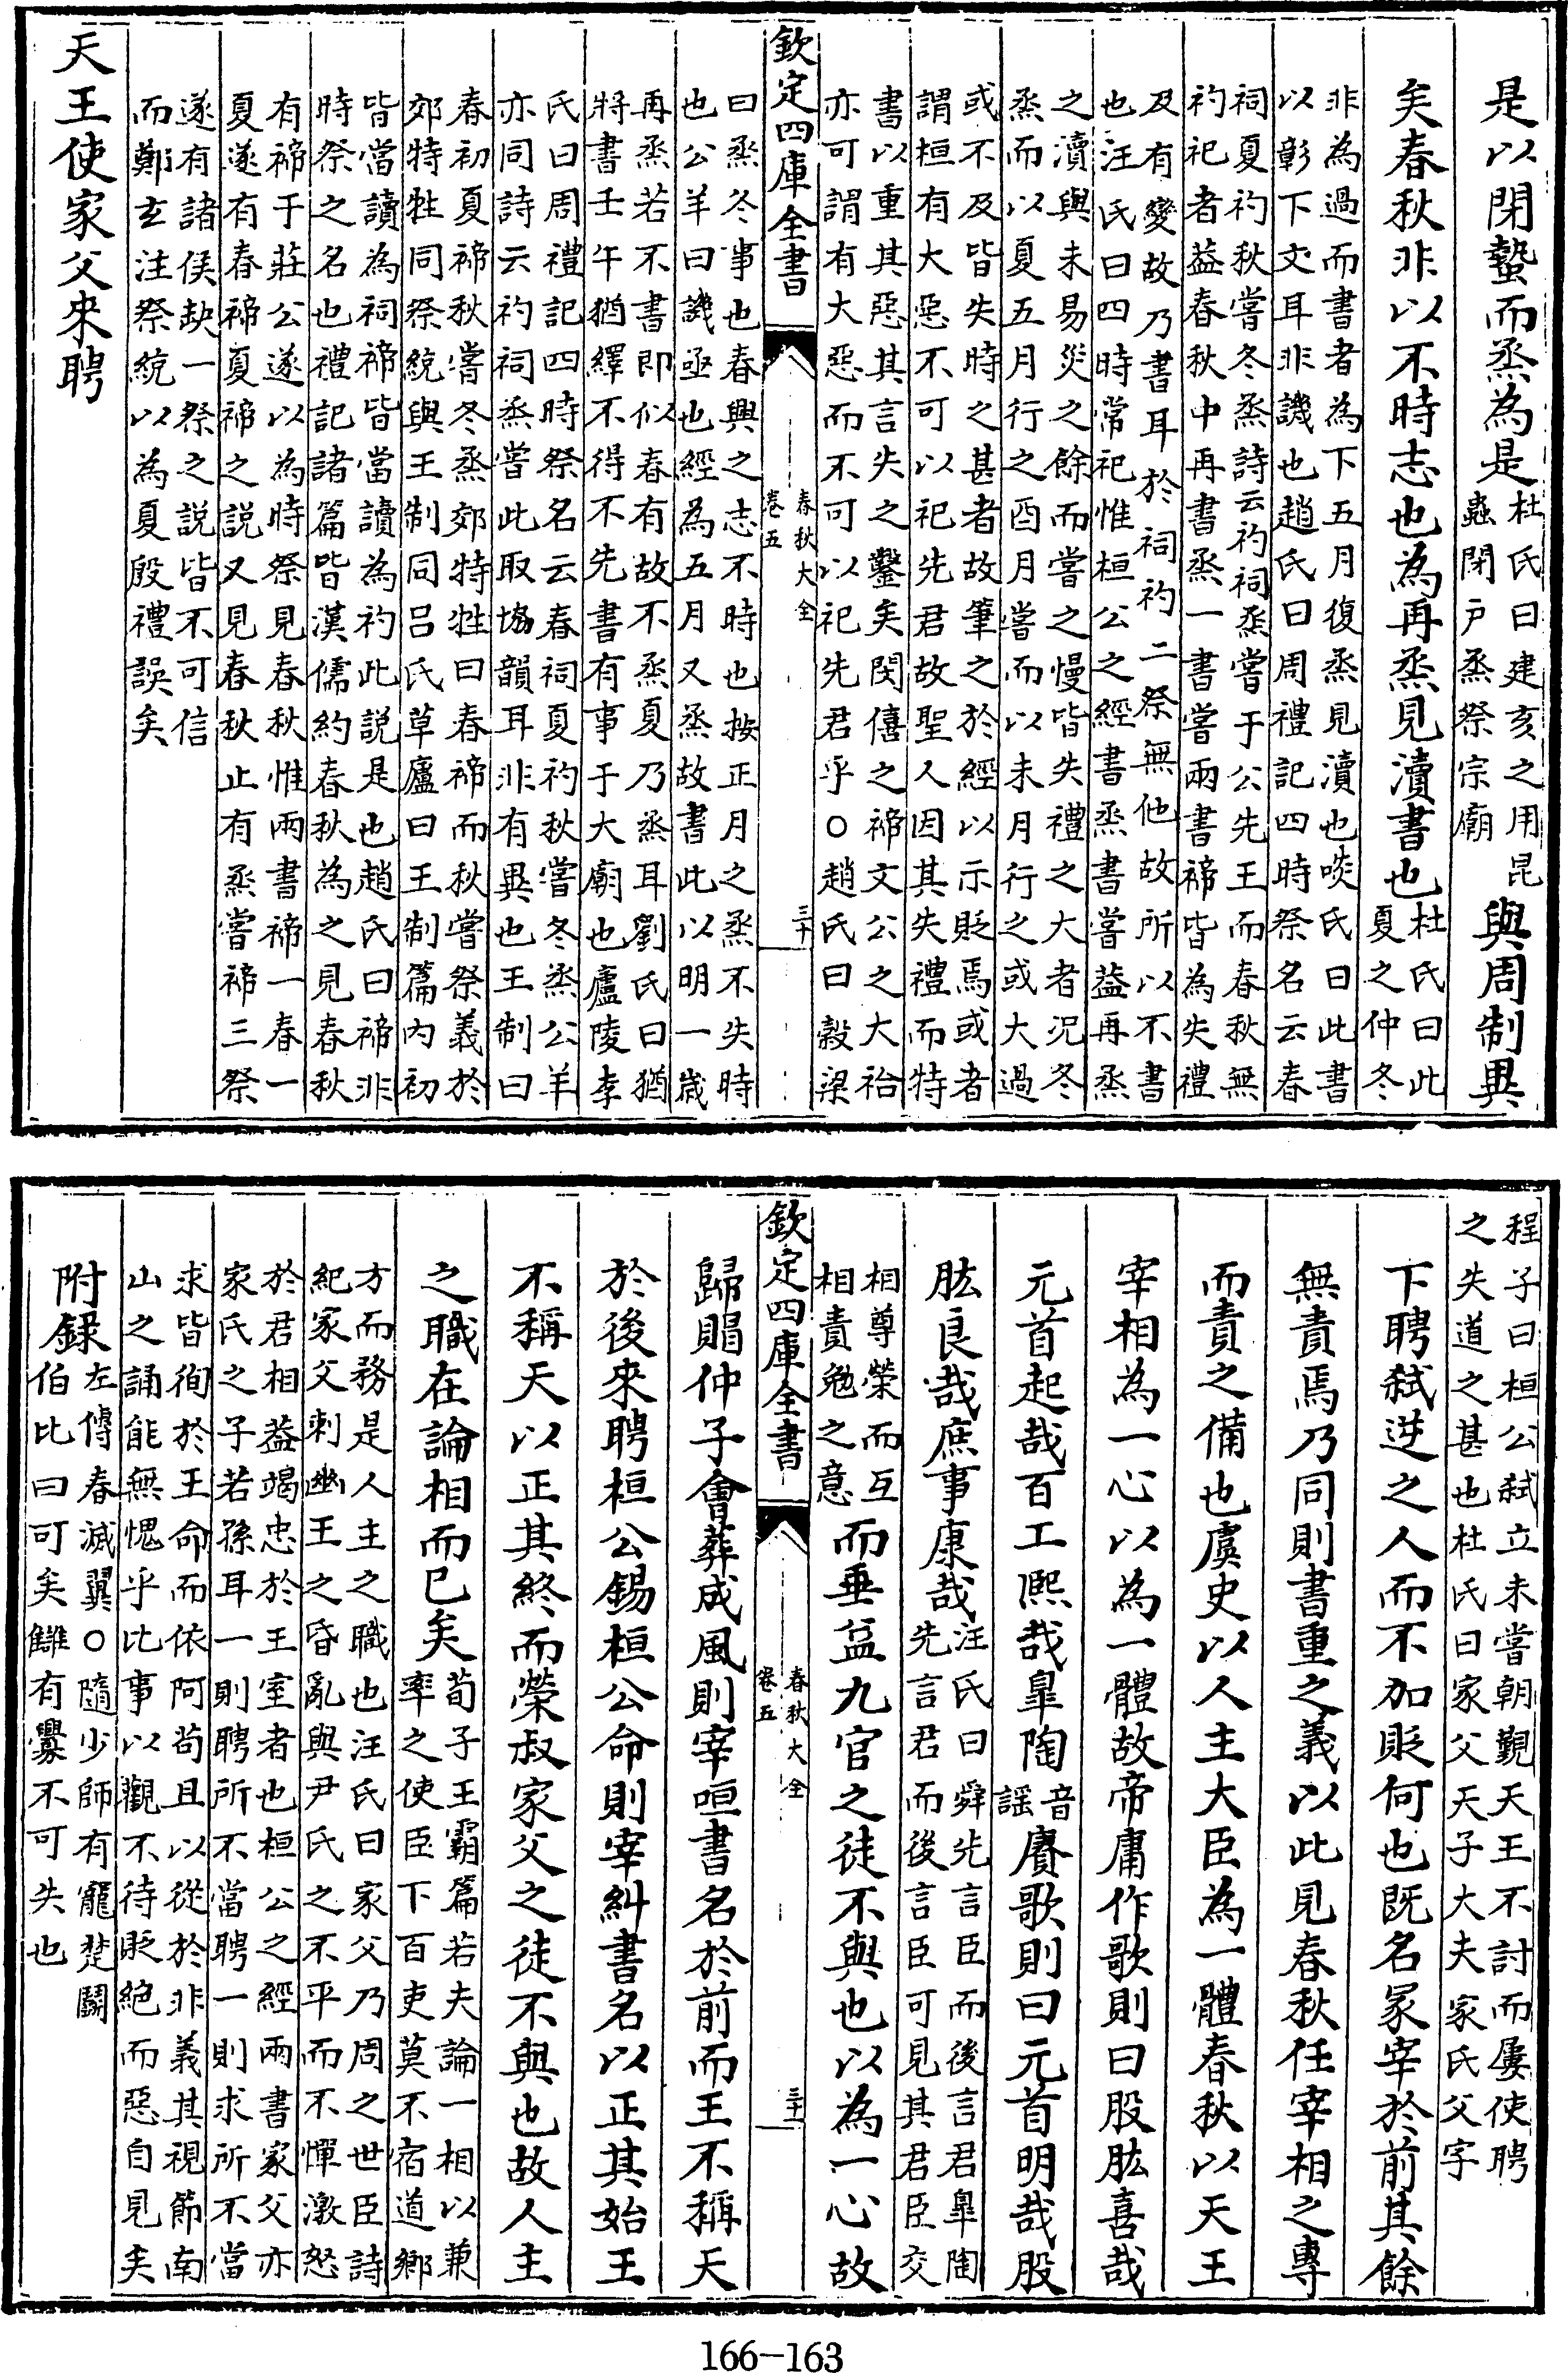 是以閉蟄而烝為是
杜氏曰建亥之用昆
蟲閉戶烝祭宗廟
與周制異
矣春秋非以不時志也為再烝見瀆書也
杜氏曰此
夏之仲冬
非為過而書者為下五月復烝見瀆也啖氏曰此書
以彰下文耳非譏也趙氏曰周禮記四時祭名云春
祠夏礿秋嘗冬烝詩云礿祠烝嘗于公先王而春秋無
礿祀者葢春秋中再書烝一書嘗兩書禘皆為失禮
及有變故乃書耳於祠礿二祭無他故所以不書
也汪氏曰四時常祀惟桓公之經書烝書嘗葢再烝
之瀆與未易災之餘而嘗之慢皆失禮之大者况冬
烝而以夏五月行之酉月嘗而以未月行之或大過
或不及皆失時之甚者故筆之於經以示貶焉或者
謂桓有大惡不可以祀先君故聖人因其失禮而特
書以重其惡其言失之鑿矣閔僖之禘文公之大祫
亦可謂有大惡而不可以祀先君乎○趙氏曰穀梁
欽定四庫全書
春秋大全
卷五
三十
曰烝冬事也春興之志不時也按正月之烝不失時
也公羊曰譏亟也經為五月又烝故書此以明一歲
再烝若不書即似春有故不烝夏乃烝耳劉氏曰猶
將書壬午猶繹不得不先書有事于大廟也廬陵李
氏曰周禮記四時祭名云春祠夏礿秋嘗冬烝公羊
亦同詩云礿祠烝嘗此取協韻耳非有異也王制曰
春初夏禘秋嘗冬烝郊特牲曰春禘而秋嘗祭義於
郊特牲同祭統與王制同呂氏草廬曰王制篇內初
皆當讀為祠禘皆當讀為礿此説是也趙氏曰禘非
時祭之名也禮記諸篇皆漢儒約春秋為之見春秋
有禘于莊公遂以為時祭見春秋惟兩書禘一春一
夏遂有春禘夏禘之説又見春秋止有烝嘗禘三祭
遂有諸侯缺一祭之説皆不可信
而鄭玄注祭統以為夏殷禮誤矣
天王使家父來聘
程子曰桓公弑立未嘗朝覲天王不討而屢使聘
之失道之甚也杜氏曰家父天子大夫家氏父字
下聘弑逆之人而不加貶何也既名冢宰於前其餘
無責焉乃同則書重之義以此見春秋任宰相之專
而責之備也虞史以人主大臣為一體春秋以天王
宰相為一心以為一體故帝庸作歌則曰股肱喜哉
元首起哉百工熙哉臯陶
音
謡
賡歌則曰元首明哉股
肱良哉庶事康哉
汪氏曰舜先言臣而後言君臯陶
先言君而後言臣可見其君臣交
相尊榮而互
相責勉之意
而垂益九官之徒不與也以為一心故
欽定四庫全書
春秋大全
卷五
三十一
歸賵仲子會葬成風則宰咺書名於前而王不稱天
於後來聘桓公錫桓公命則宰糾書名以正其始王
不稱天以正其終而榮叔家父之徒不與也故人主
之職在論相而已矣
荀子王霸篇若夫論一相以兼
率之使臣下百吏莫不宿道鄉
方而務是人主之職也汪氏曰家父乃周之世臣詩
紀家父刺幽王之昏亂與尹氏之不平而不憚激怒
於君相葢竭忠於王室者也桓公之經兩書家父亦
家氏之子若孫耳一則聘所不當聘一則求所不當
求皆徇於王命而依阿苟且以從於非義其視節南
山之誦能無愧乎比事以觀不待貶絕而惡自見矣
附録
左傳春滅翼○隨少師有寵楚鬭
伯比曰可矣讎有釁不可失也
166-163